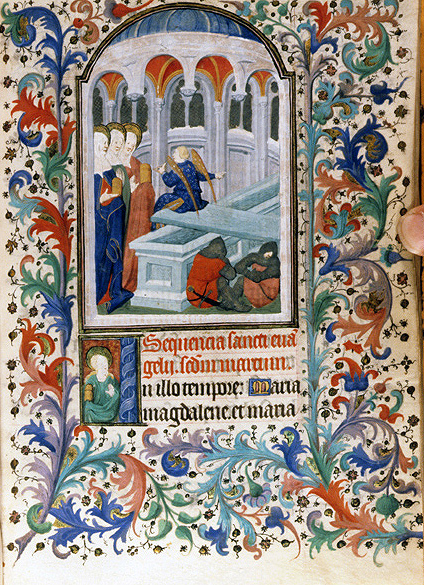 Sequencia sancti eua
gelii. scdm marcum.
In illo tempore: Maria
magdalene. et maria